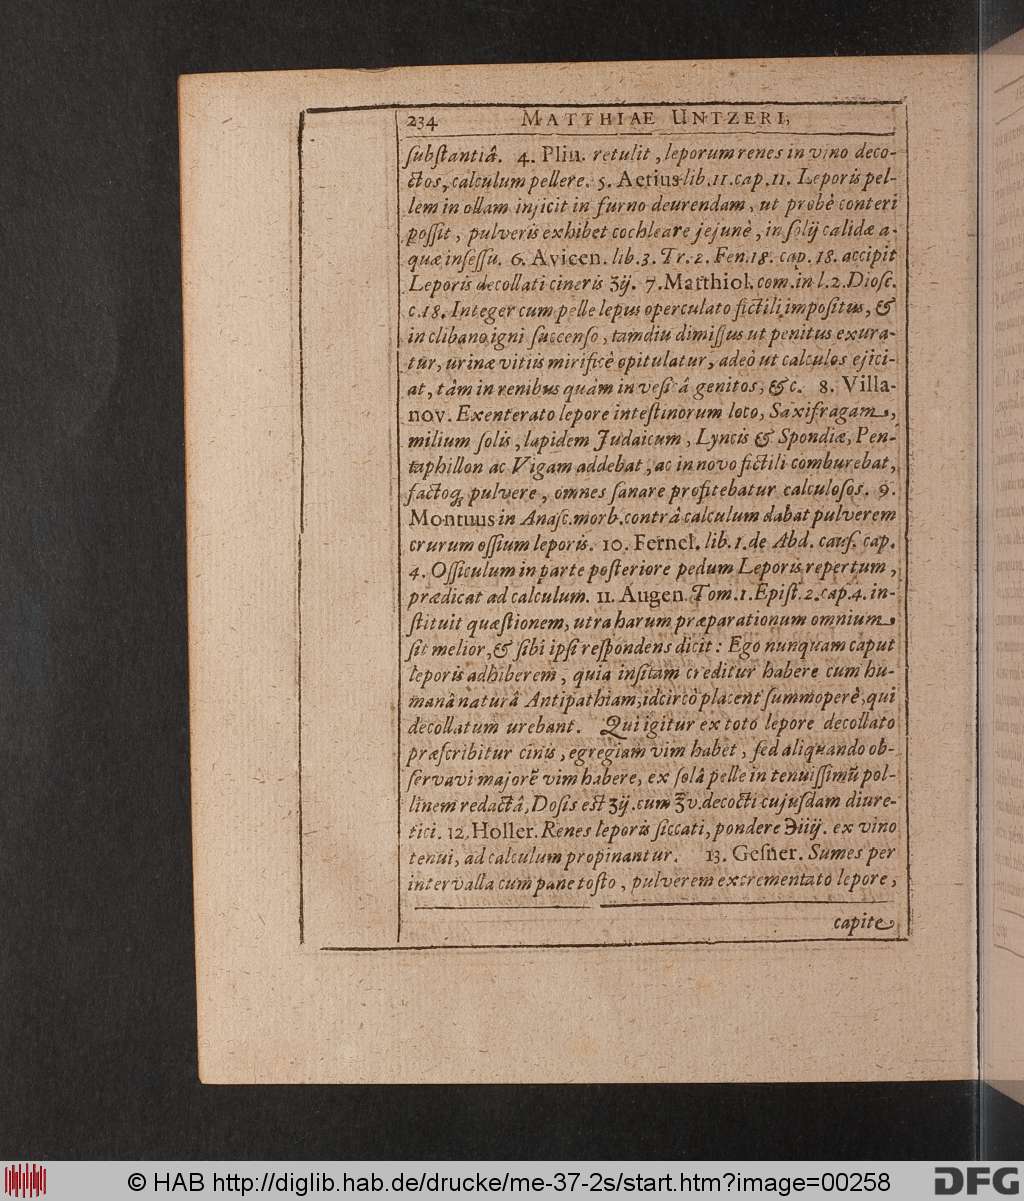 234 MATTHIAE UNTZERI,
ſubſtantiâ. 4. Plin. retulit, leporum renes in vino deco-
ctos, calculum pellere. 5. Aetius lib. 11. cap. 11. Leporis pel-
lem in ollam injicit in furno deurendam, ut probè conteri
poſſit, pulveris exhibet cochleare jejunè, in ſolij calidæ a-
quæ inſeſſu. 6. Avicen. lib. 3. Tr. 2. Fen. 18. cap. 18. accipit
Leporis decollati cineris ʒij. 7. Matthiol. com. in l. 2. Dioſc.
c. 18. Integer cum pelle lepus operculato fictili impoſitus, &
in clibano igni ſuccenſo, tamdiu dimiſſus ut penitus exura-
tur, urinæ vitiis mirificè opitulatur, adeò ut calculos ejici-
at, tàm in renibus quàm in veſicâ genitos, &c. 8. Villa-
nov. Exenterato lepore inteſtinorum loco, Saxifragam,
milium ſolis, lapidem Judaicum, Lyncis & Spondiæ, Pen-
taphillon ac Vigam addebat, ac in novo fictili comburebat,
factoq́; pulvere, omnes ſanare profitebatur calculoſos. 9.
Montuus in Anaſc. morb. contrâ calculum dabat pulverem
crurum oſſium leporis. 10. Fernel. lib. 1. de Abd. cauſ. cap.
4. Oſſiculum in parte poſteriore pedum Leporis repertum,
prædicat ad calculum. 11. Augen. Tom. 1. Epiſt. 2. cap. 4. in-
ſtituit quæſtionem, utra harum præparationum omnium
ſit melior, & ſibi ipſi reſpondens dicit: Ego nunquam caput
leporis adhiberem, quia inſitam creditur habere cum hu-
manâ naturâ Antipathiam; idcircò placent ſummoperè, qui
decollatum urebant. Qui igitur ex toto lepore decollato
præſcribitur cinis, egregiam vim habet, ſed aliquando ob-
ſervavi majorẽ vim habere, ex ſolâ pelle in tenuiſſimũ pol-
linem redactâ, Doſis eſt ʒij. cum ℥v. decocti cujuſdam diure-
tici. 12. Holler. Renes leporis ſiccati, pondere ℈iiij. ex vino
tenui, ad calculum propinantur. 13. Geſner. Sumes per
intervalla cum pane toſto, pulverem excrementato lepore,
capite
© HAB http://diglib.hab.de/drucke/me-37-2s/start.htm?image=00258
DFG